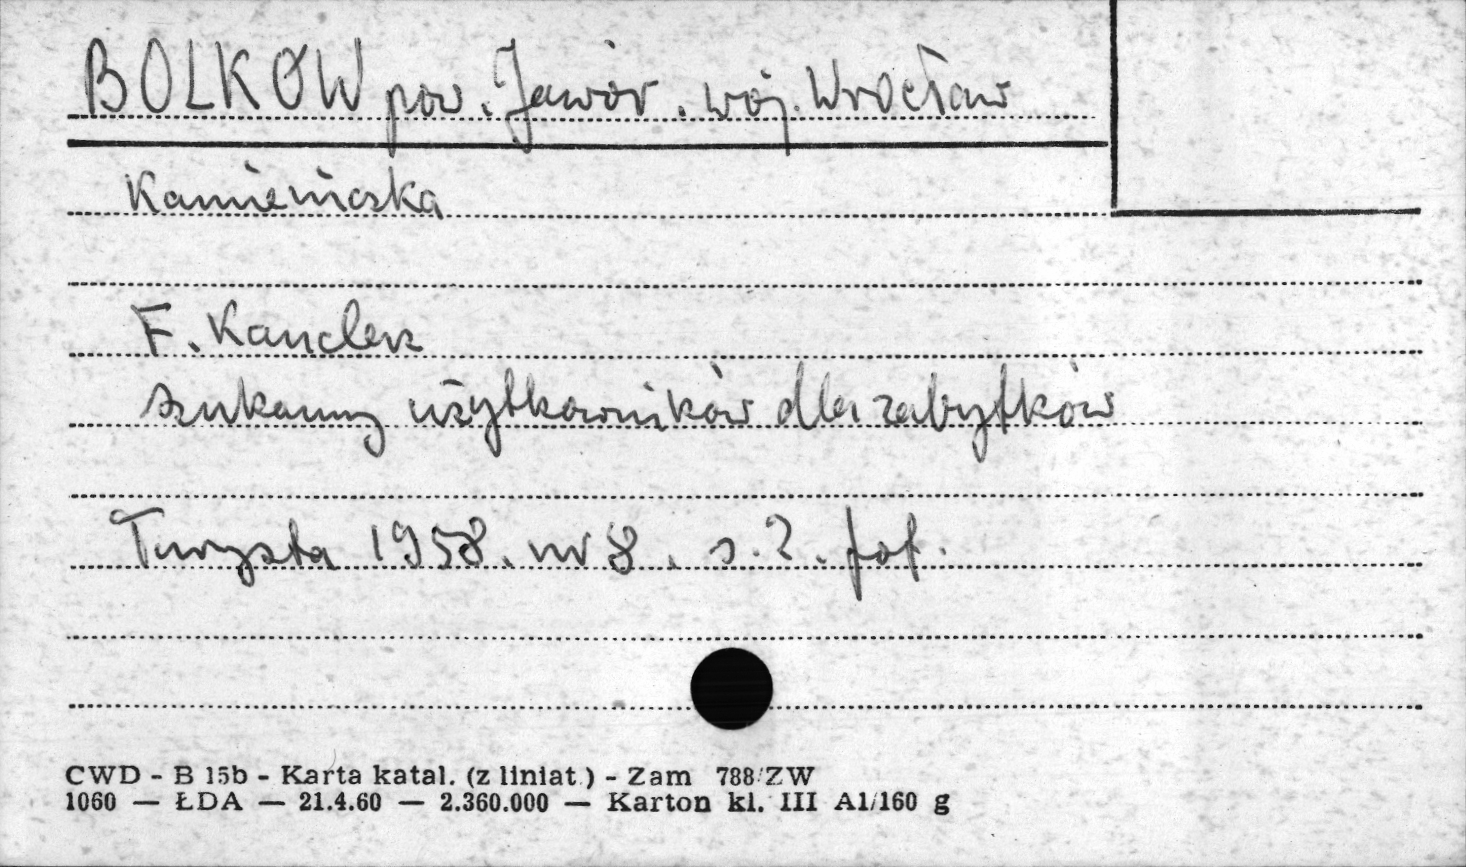 BOLKÓW pow. Jawor. woj. Wrocław
Kamieniczka
F. Kanclerz
szukamy użytkowników dla zabytków
Turysta 1958. nr 8. s. 2. fot.
CWD - B 15b - Karta katal. (z liniat.) - Zam 788/ZW
1060 — ŁDA — 21.4.60 — 2.360.000 — Karton kl. III A1/160 g